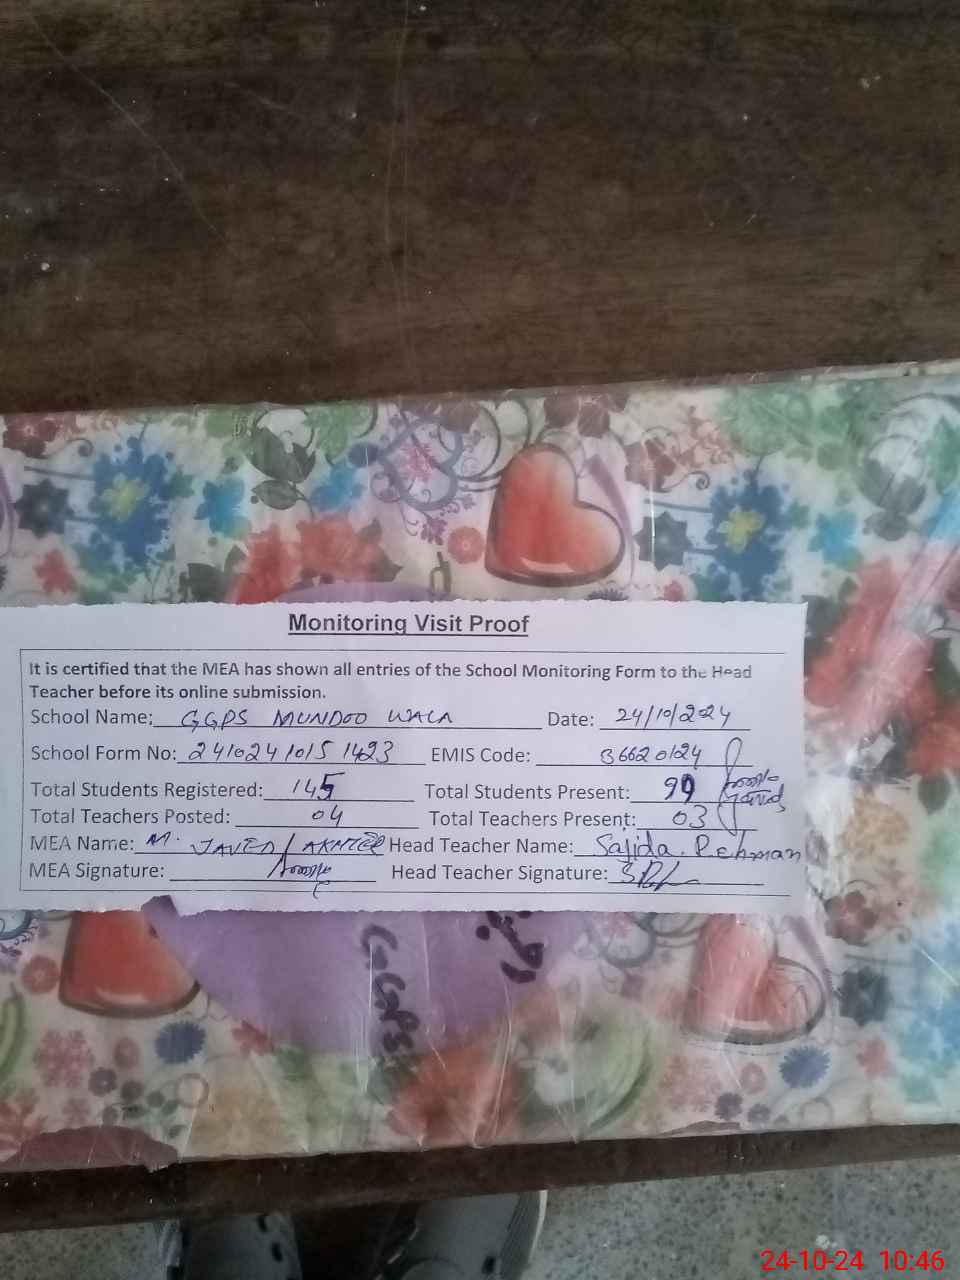 Monitoring Visit Proof
It is certified that the MEA has shown all entries of the School Monitoring Form to the Head
Teacher before its online submission.
School Name: GGPS MUNDOO WALA Date: 24/10/2024
School Form No: 24102410151423 EMIS Code: 36620124
Total Students Registered: 145 Total Students Present: 99
Total Teachers Posted: 04 Total Teachers Present: 03
MEA Name: M. JAVED AKHTER Head Teacher Name: Sajida Rehman
MEA Signature: Head Teacher Signature:
GGPS
24-10-24 10:46